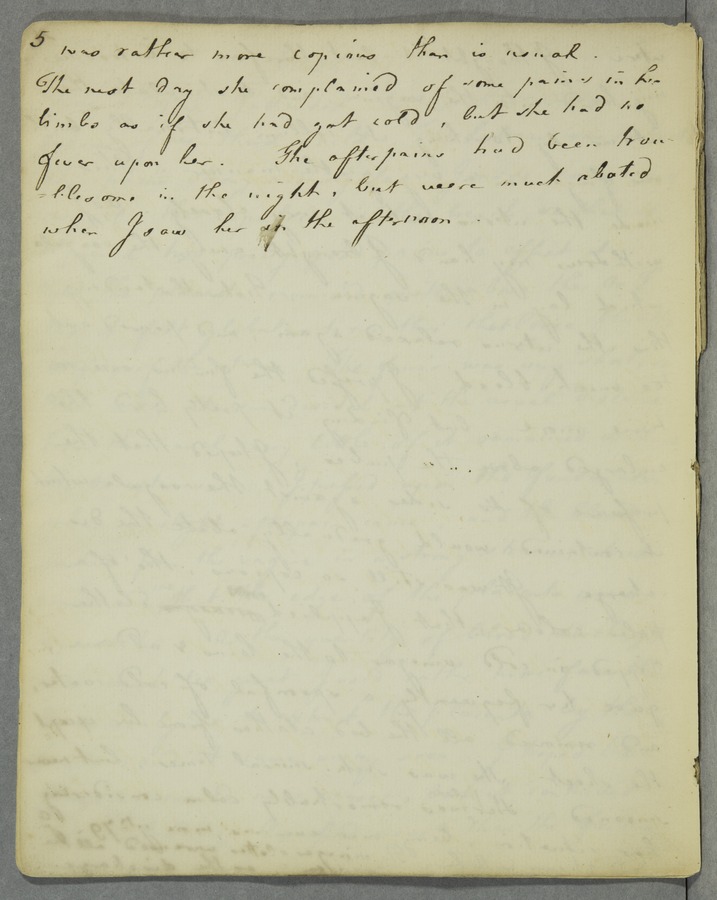 5 was rather more copious than is usual.
The next day she complained of some pains in her
limbs as if she had got cold, but she had no
fever upon her. The afterpains had been trou-
=blesome in the night, but were much abated
when I saw her in the afternoon.